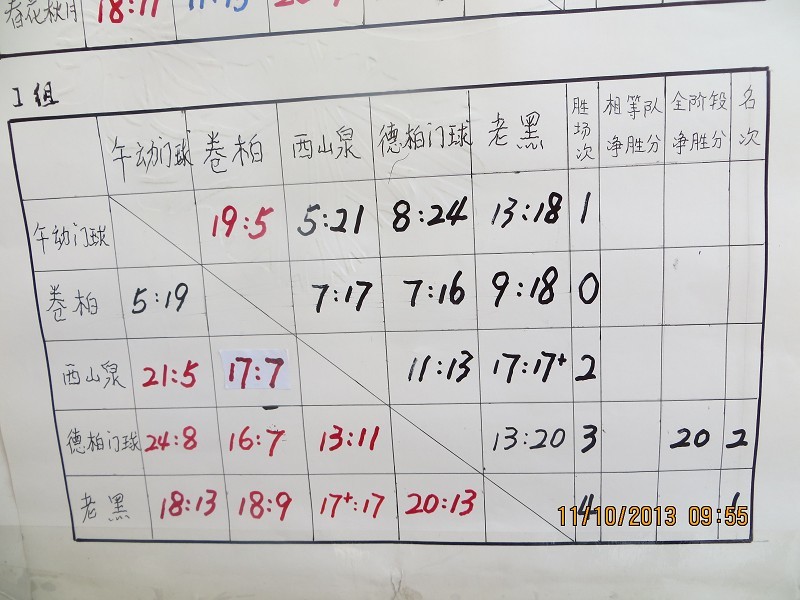 春花秋月 18:11
I组
午动门球 卷柏 西山泉 德柏门球 老黑 胜场次 相等队净胜分 全阶段净胜分 名次
午动门球 19:5 5:21 8:24 13:18 1
卷柏 5:19 7:17 7:16 9:18 0
西山泉 21:5 17:7 11:13 17:17+ 2
德柏门球 24:8 16:7 13:11 13:20 3 20 2
老黑 18:13 18:9 17+:17 20:13 4 1
11/10/2013 09:55